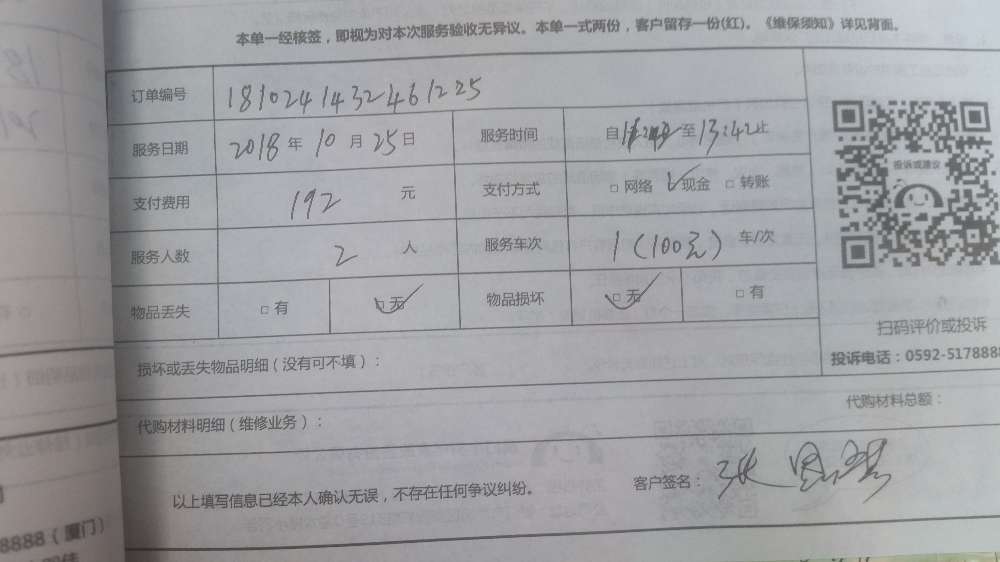 本单一经核签，即视为对本次服务验收无异议。本单一式两份，客户留存一份(红)。《维保须知》详见背面。
订单编号 181024143246 1225
服务日期 2018 年 10 月 25 日 服务时间 自 至 13:42 止
支付费用 192 元 支付方式 □ 网络 ☑ 现金 □ 转账
服务人数 2 人 服务车次 1（100元）车/次
物品丢失 □ 有 ☑ 无 物品损坏 ☑ 无 □ 有
损坏或丢失物品明细（没有可不填）：
代购材料明细（维修业务）：
代购材料总额：
以上填写信息已经本人确认无误，不存在任何争议纠纷。 客户签名：张
投诉或建议
扫码评价或投诉
投诉电话：0592-5178888
8888（厦门）